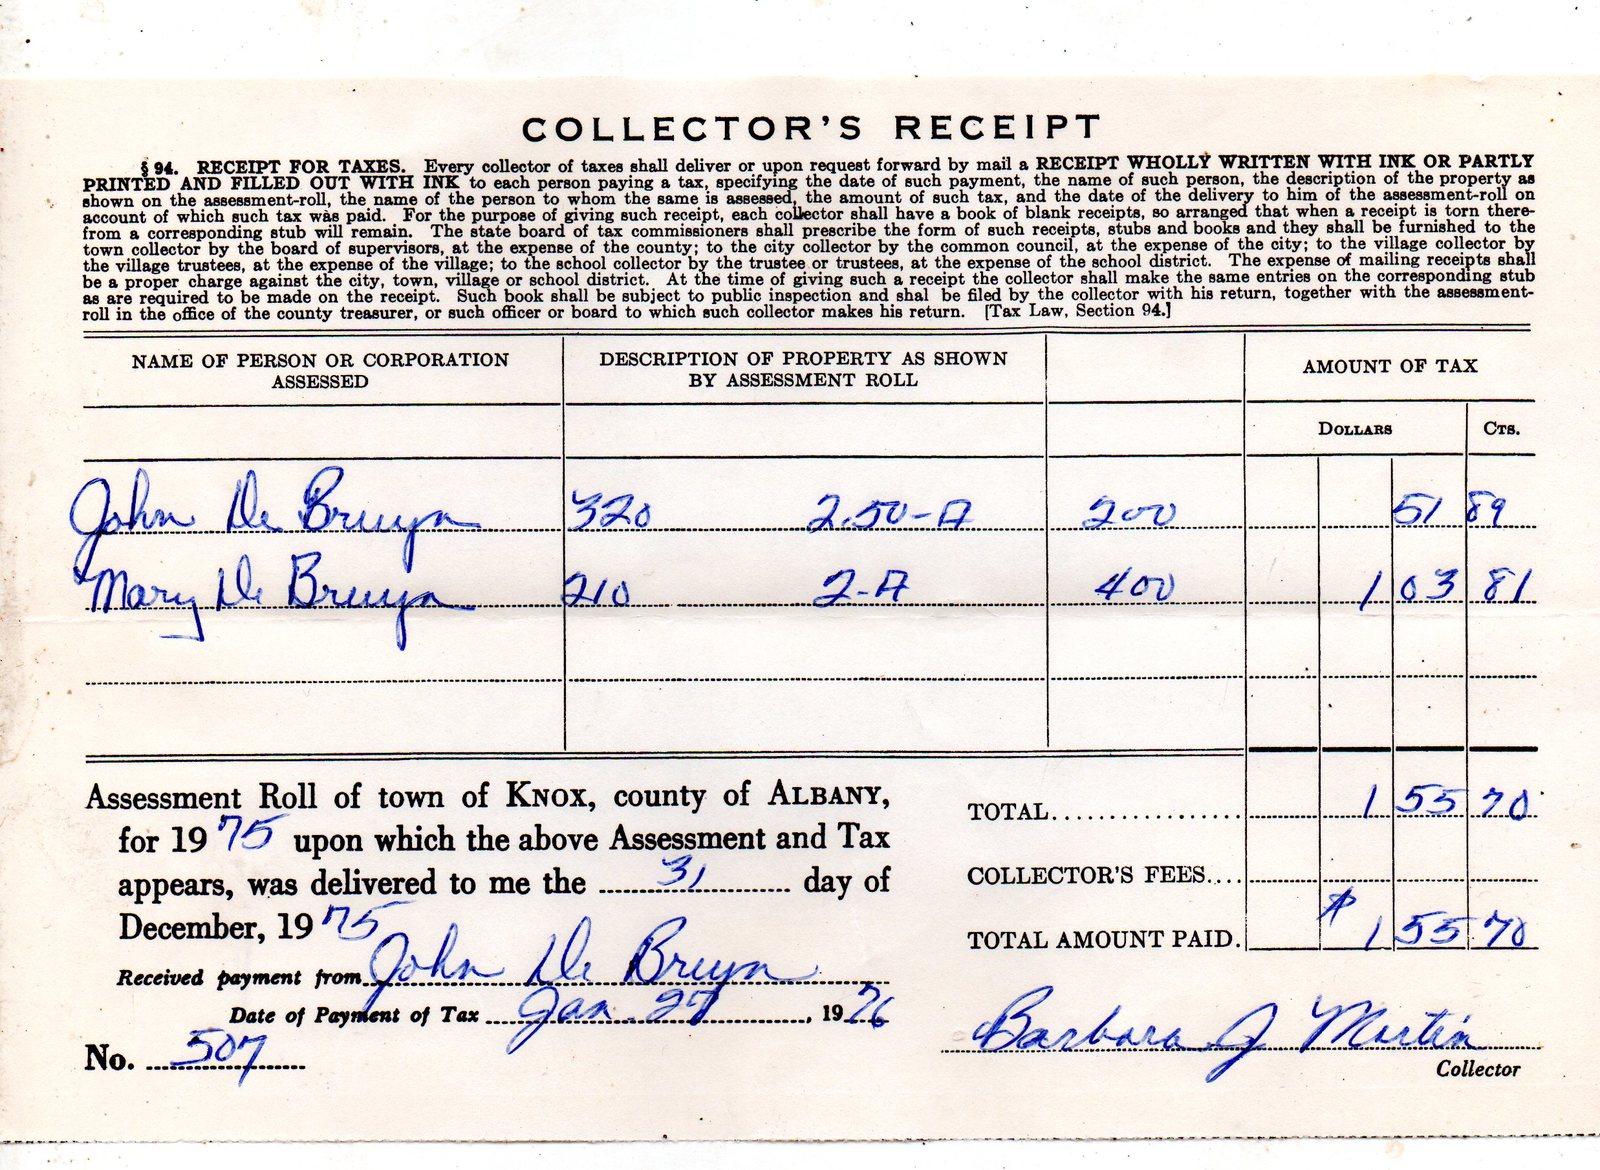 COLLECTOR'S RECEIPT
§ 94. RECEIPT FOR TAXES. Every collector of taxes shall deliver or upon request forward by mail a RECEIPT WHOLLY WRITTEN WITH INK OR PARTLY
PRINTED AND FILLED OUT WITH INK to each person paying a tax, specifying the date of such payment, the name of such person, the description of the property as
shown on the assessment-roll, the name of the person to whom the same is assessed, the amount of such tax, and the date of the delivery to him of the assessment-roll on
account of which such tax was paid. For the purpose of giving such receipt, each collector shall have a book of blank receipts, so arranged that when a receipt is torn there-
from a corresponding stub will remain. The state board of tax commissioners shall prescribe the form of such receipts, stubs and books and they shall be furnished to the
town collector by the board of supervisors, at the expense of the county; to the city collector by the common council, at the expense of the city; to the village collector by
the village trustees, at the expense of the village; to the school collector by the trustee or trustees, at the expense of the school district. The expense of mailing receipts shall
be a proper charge against the city, town, village or school district. At the time of giving such a receipt the collector shall make the same entries on the corresponding stub
as are required to be made on the receipt. Such book shall be subject to public inspection and shal be filed by the collector with his return, together with the assessment-
roll in the office of the county treasurer, or such officer or board to which such collector makes his return. [Tax Law, Section 94.]
NAME OF PERSON OR CORPORATION ASSESSED
DESCRIPTION OF PROPERTY AS SHOWN BY ASSESSMENT ROLL
AMOUNT OF TAX
DOLLARS CTS.
John De Bruyn 320 2.50-A 200 51 89
Mary De Bruyn 210 2-A 400 1 03 81
Assessment Roll of town of KNOX, county of ALBANY,
for 1975 upon which the above Assessment and Tax
appears, was delivered to me the 31 day of
December, 1975
Received payment from John De Bruyn
Date of Payment of Tax Jan. 27, 1976
No. 507
TOTAL 1 55 70
COLLECTOR'S FEES
TOTAL AMOUNT PAID. $ 1 55 70
Barbara J Martin
Collector